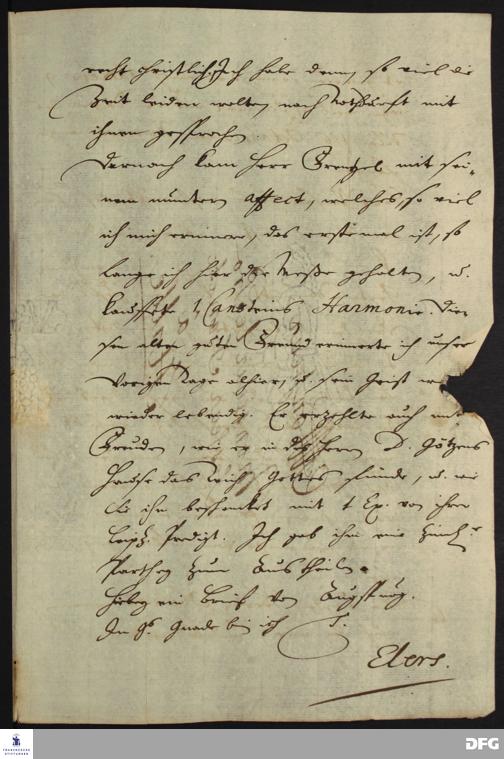 recht christlich. Ich habe denn, so viel die
Zeit leiden wollen, nach Nothdurft mit
ihnen gesprochen.
Darnach kam Herr Frentzel mit sei-
nem muntern affect, welches, so viel
ich mich erinnere, das erstemal ist, so
lange ich hier die Meße gehalten, u.
kauffte 1 Cansteins Harmonie. Die-
sen alten guten Freund erinnerte ich unser
vorigen Tage alhier, u. sein Geist
wieder lebendig. Er erzehlte auch mit
Freuden, wie er in des Herrn D. Götzens
Hause das Reich Gottes funde, u. wie
Sie ihn beschenket mit 1 Ex. von ihrer
Leipz. Predigt. Ich gab ihm eine
Parthey zum Austheilen.
Hiebey ein Brief von Augspurg.
In Gnade bin ich
Elers.
FRANCKESCHE STIFTUNGEN
DFG